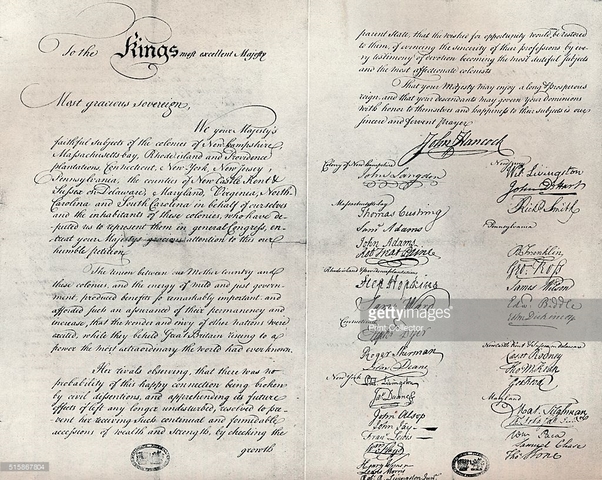 To the Kings most excellent Majesty
Most gracious Sovereign,
We your Majesty's
faithful subjects of the colonies of New hampshire
Massachusetts bay, Rhode island and Providence
plantations, Connecticut, New York, New Jersey
Pennsylvania, the counties of New Castle Kent &
Sussex on Delaware, Maryland, Virginia, North
Carolina and South Carolina in behalf of ourselves
and the inhabitants of these colonies, who have de-
puted us to represent them in general Congress, en-
treat your Majestys gracious attention to this our
humble petition.
The union between our Mother Country and
these colonies, and the energy of mild and just govern-
ment, produced benefits so remarkably important and
afforded such an assurance of their permanency and
increase, that the wonder and envy of other nations were
excited, while they beheld Great Britain rising to a
power the most extraordinary the world had ever known.
Her rivals observing, that there was no
probability of this happy connection being broken
by civil dissentions, and apprehending its future
effects if left any longer undisturbed, resolved to pre-
vent her receiving such continual and formidable
accessions of wealth and strength, by checking the
growth
parent State, that the wishes for opportunity would be restored
to them, of evincing the sincerity of their professions by eve-
ry testimony of devotion becoming the most dutiful subjects
and the most affectionate colonists
That your Majesty may enjoy a long & prosperous
reign, and that your descendants may govern your dominions
with honor to themselves and happiness to their subjects is our
sincere and fervent prayer
John Hancock
Colony of New hampshire
John Langdon
Massachusetts bay
Thomas Cushing
Saml Adams
John Adams
Robt Treat Paine
Rhode island & providence plantations
Step Hopkins
Sam: Ward
Connecticut
Elipht Dyer
Roger Sherman
Silas Deane
New York
Phil Livingston
Jas Duane
John Alsop
John Jay
Frans Lewis
Wm Floyd
Henry Wisner
Lewis Morris
Robt R Livingston Junr
New Jersey
Wil Livingston
John D Hart
Richd Smith
Pennsylvania
B Franklin
Geo: Ross
James Wilson
Edwd Biddle
John Dickinson
Newcastle Kent & Sussex on delaware
Caesar Rodney
Tho M:Kean
Geo Read
Maryland
Mat. Tilghman
Wm Paca
Samuel Chase
Thos Stone
gettyimages
Print Collector
515867804